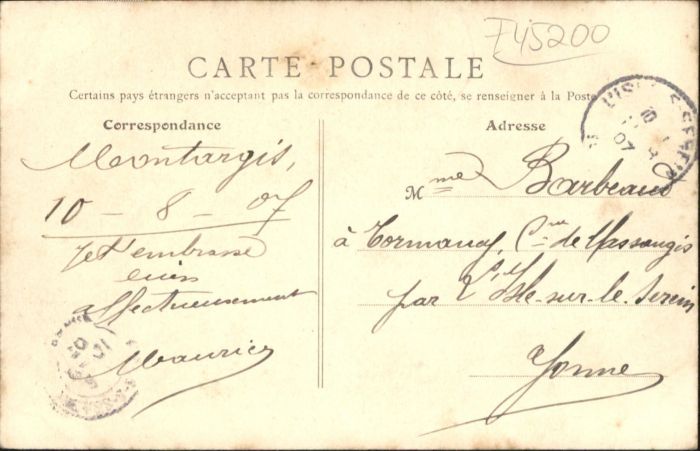 F45200
CARTE POSTALE
Certains pays étrangers n'acceptant pas la correspondance de ce côté, se renseigner à la Poste
Correspondance
Montargis,
10 - 8 - 07
Je t'embrasse
bien
affectueusement
Maurice
Adresse
Mme Barbeau
à Tormancy, Cne de Massangis
par L'Isle-sur-le-Serein
Yonne